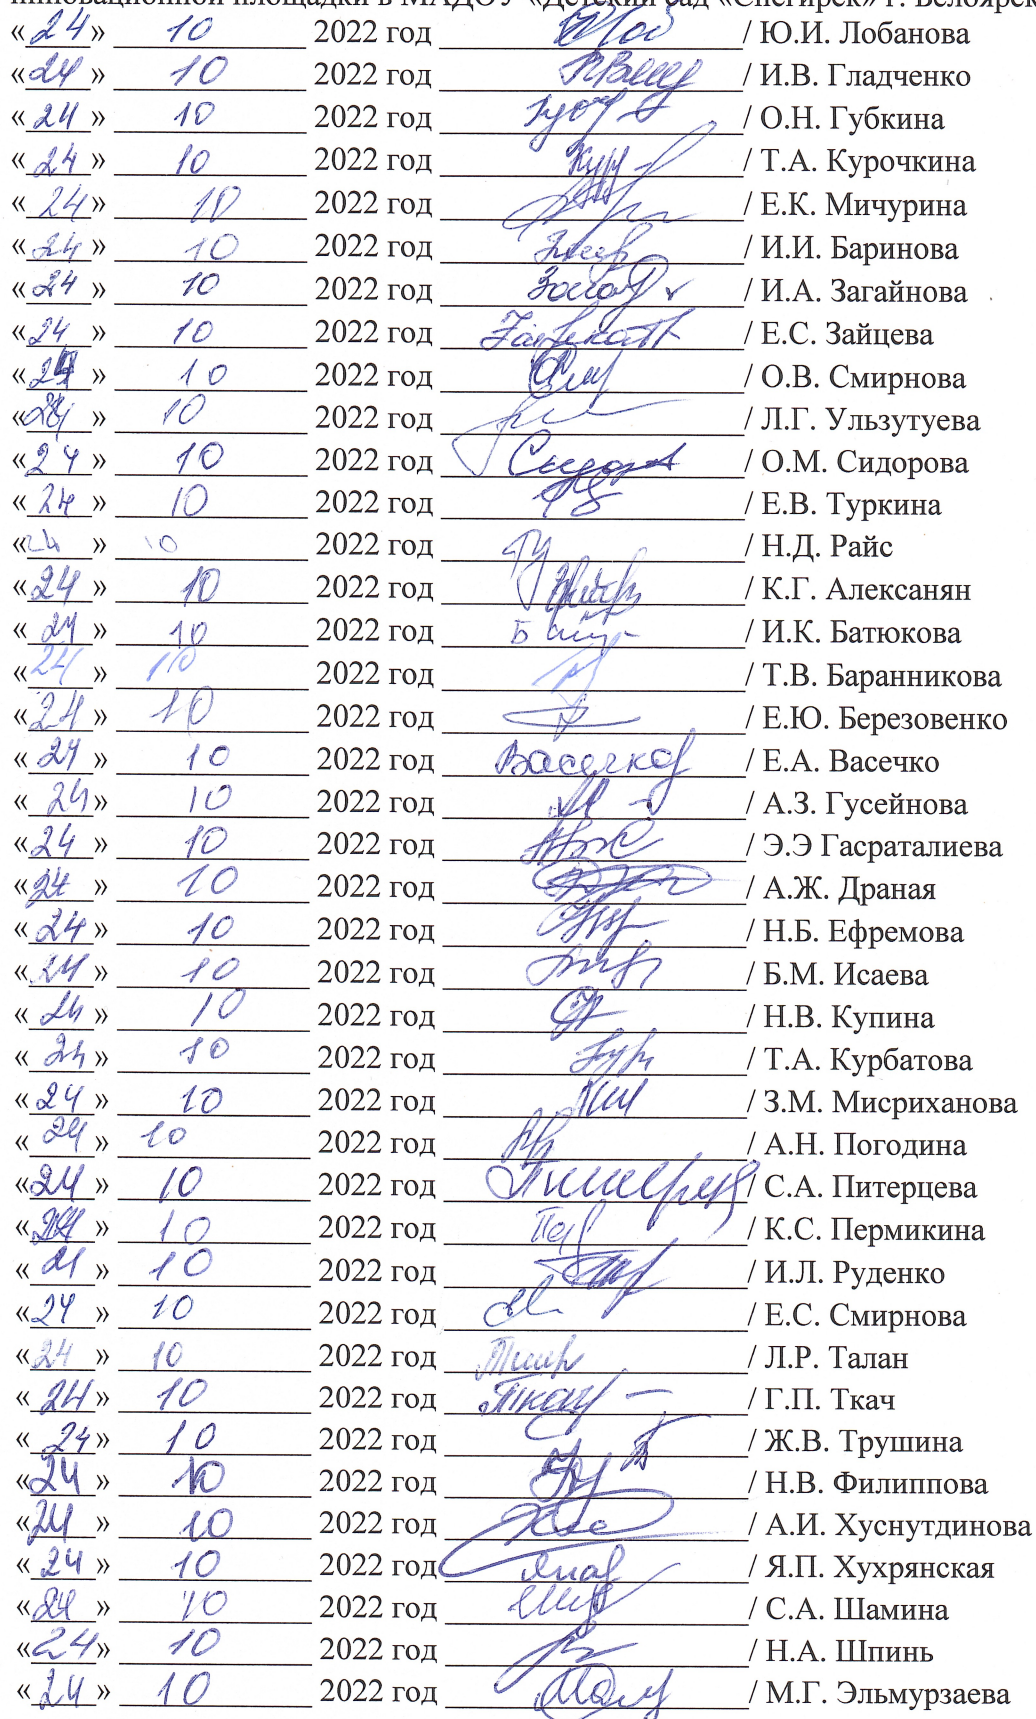 инновационной площадки в МАДОУ «Детский сад «Снегирёк» г. Белоярск
«24» 10 2022 год / Ю.И. Лобанова
«24» 10 2022 год / И.В. Гладченко
«24» 10 2022 год / О.Н. Губкина
«24» 10 2022 год / Т.А. Курочкина
«24» 10 2022 год / Е.К. Мичурина
«24» 10 2022 год / И.И. Баринова
«24» 10 2022 год / И.А. Загайнова
«24» 10 2022 год / Е.С. Зайцева
«24» 10 2022 год / О.В. Смирнова
«24» 10 2022 год / Л.Г. Ульзутуева
«24» 10 2022 год / О.М. Сидорова
«24» 10 2022 год / Е.В. Туркина
«24» 10 2022 год / Н.Д. Райс
«24» 10 2022 год / К.Г. Алексанян
«24» 10 2022 год / И.К. Батюкова
«24» 10 2022 год / Т.В. Баранникова
«24» 10 2022 год / Е.Ю. Березовенко
«24» 10 2022 год / Е.А. Васечко
«24» 10 2022 год / А.З. Гусейнова
«24» 10 2022 год / Э.Э Гасраталиева
«24» 10 2022 год / А.Ж. Драная
«24» 10 2022 год / Н.Б. Ефремова
«24» 10 2022 год / Б.М. Исаева
«24» 10 2022 год / Н.В. Купина
«24» 10 2022 год / Т.А. Курбатова
«24» 10 2022 год / З.М. Мисриханова
«24» 10 2022 год / А.Н. Погодина
«24» 10 2022 год / С.А. Питерцева
«24» 10 2022 год / К.С. Пермикина
«24» 10 2022 год / И.Л. Руденко
«24» 10 2022 год / Е.С. Смирнова
«24» 10 2022 год / Л.Р. Талан
«24» 10 2022 год Ткач / Г.П. Ткач
«24» 10 2022 год / Ж.В. Трушина
«24» 10 2022 год / Н.В. Филиппова
«24» 10 2022 год / А.И. Хуснутдинова
«24» 10 2022 год / Я.П. Хухрянская
«24» 10 2022 год / С.А. Шамина
«24» 10 2022 год / Н.А. Шпинь
«24» 10 2022 год / М.Г. Эльмурзаева